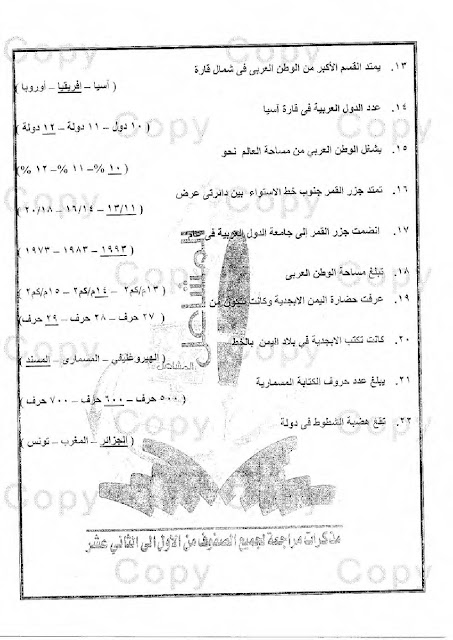 ١٣. يمتد القسم الأكبر من الوطن العربى فى شمال قارة
( آسيا – إفريقيا – أوروبا )
١٤. عدد الدول العربية فى قارة آسيا
( ١٠ دول – ١١ دولة – ١٢ دولة )
١٥. يشغل الوطن العربي من مساحة العالم نحو
( ١٠ % – ١١ % – ١٢ % )
١٦. تمتد جزر القمر جنوب خط الاستواء بين دائرتى عرض
( ١٣/١١ – ١٦/١٤ – ٢٠/١٨ )
١٧. انضمت جزر القمر الى جامعة الدول العربية فى عام
( ١٩٩٣ – ١٩٨٣ – ١٩٧٣ )
١٨. تبلغ مساحة الوطن العربى
( ١٣م/كم٢ – ١٤م/كم٢ – ١٥م/كم٢ )
١٩. عرفت حضارة اليمن الابجدية وكانت تتكون من
( ٢٧ حرف – ٢٨ حرف – ٢٩ حرف )
٢٠. كانت تكتب الابجدية في بلاد اليمن بالخط
( الهيروغليفي – المسمارى – المسند )
٢١. يبلغ عدد حروف الكتابة المسمارية
( ٥٠٠ حرف – ٦٠٠ حرف – ٧٠٠ حرف )
٢٢. تقع هضبة الشطوط فى دولة
( الجزائر – المغرب – تونس )
مذكرات مراجعة لجميع الصفوف من الأول الى الثاني عشر
Copy Copy
Copy Copy
Copy Copy
Copy Copy
Copy Copy
Copy Copy
Copy Copy
Copy Copy